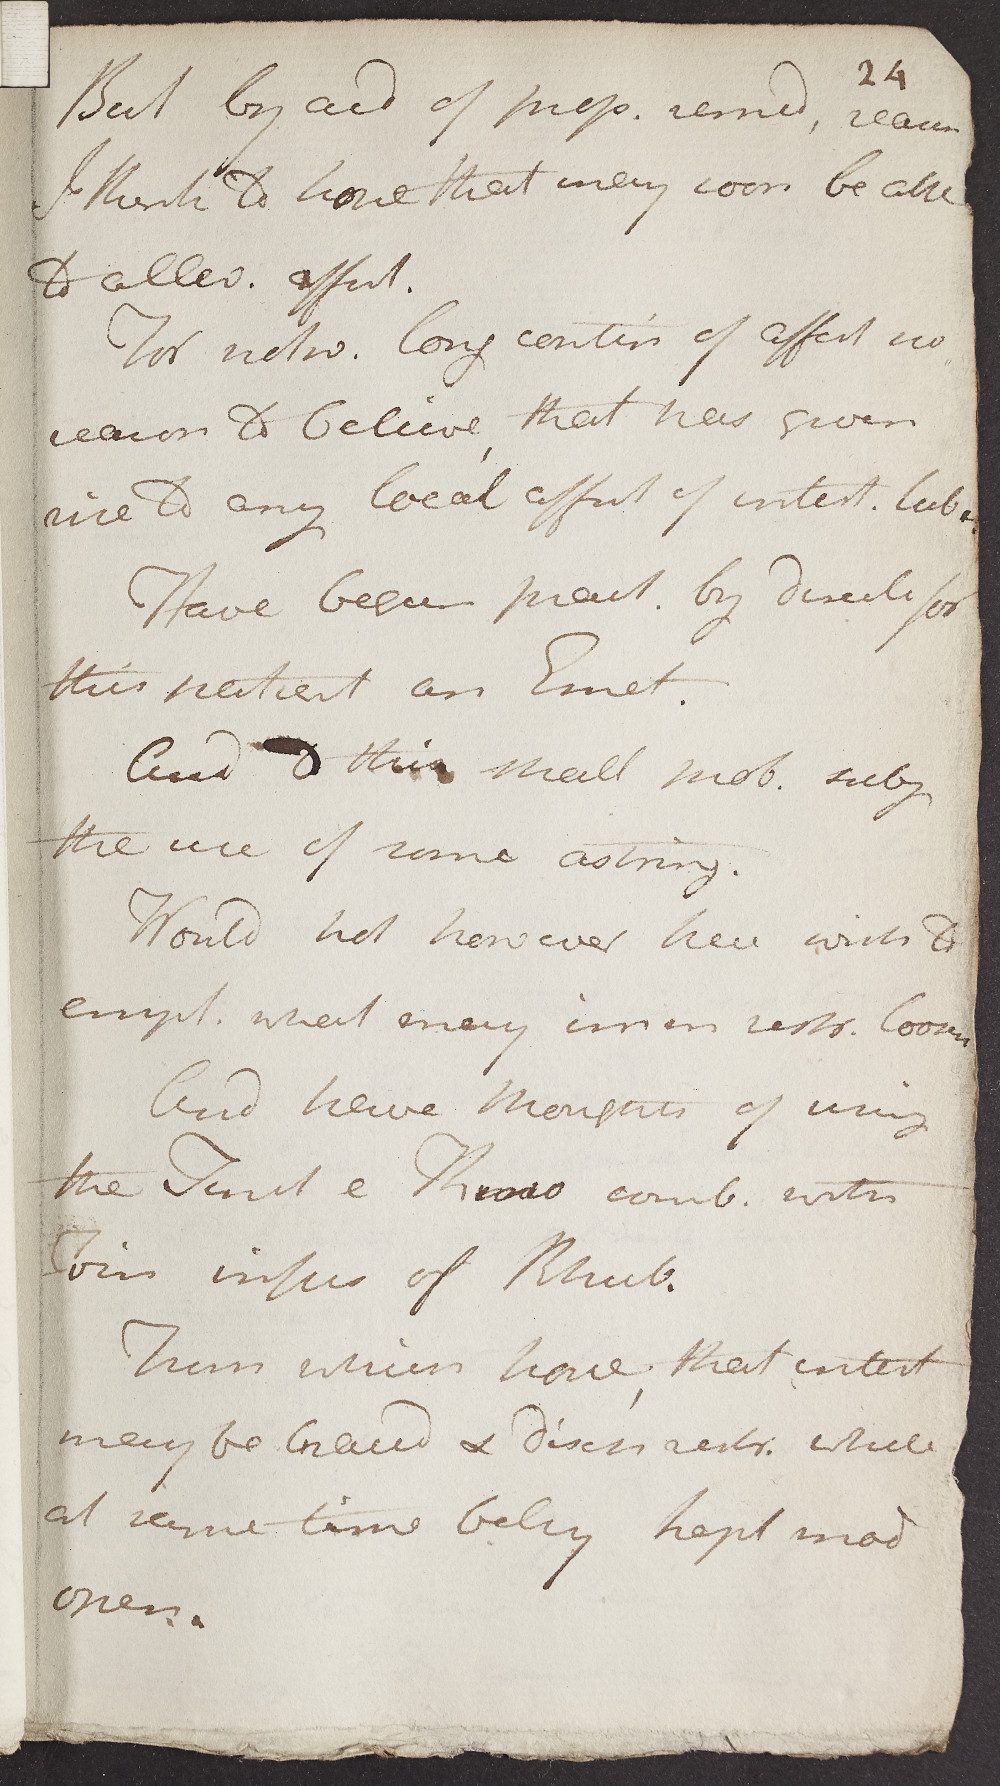 24
But by aid of prop. remed, reason
I think to hope that may soon be able
to allev. affect.
For notw. long contin of affect no
reason to believe, that has given
rise to any local affect of intest. tube.
Have begun pract. by directi for
this patient an Emet.
And to this shall prob. subj
the use of some astring.
Would not however here wish to
empl. what may imm restr. loosen
And have thoughts of using
the Tinct e Kino comb. with
Vin infus of Rhub.
From which hope, that intest
may be braced & disch restr. while
at same time belly kept mod
open.